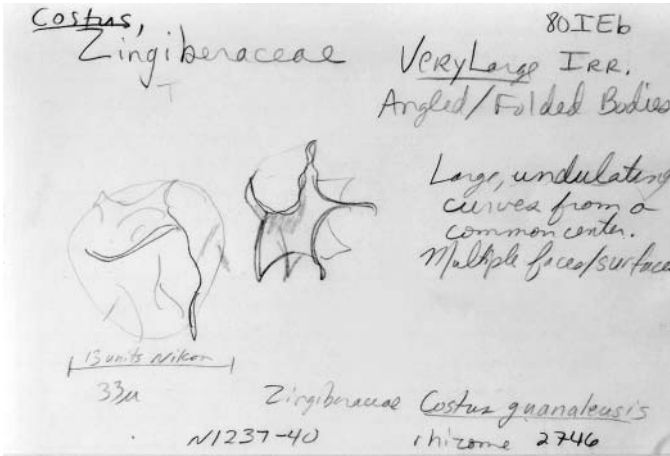 Costus,
Zingiberaceae
T
80IEb
VERY Large IRR.
Angled/Folded Bodies
Large, undulating
curves from a
common center.
Multiple faces/surfaces
13 units Nikon
33µ
Zingiberaceae Costus guanaiensis
N1237-40 rhizome 2746